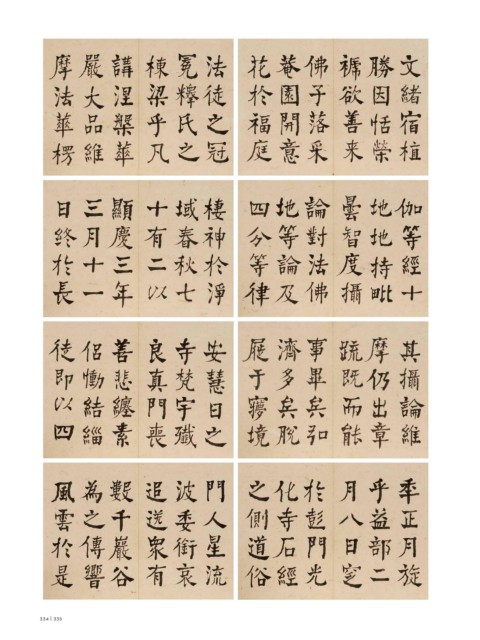 文緒宿植
勝因恬榮
褫欲善来
佛子落采
菴園開意
花於福庭
法徒之冠
冕釋氏之
棟梁乎凡
講涅槃華
嚴大品維
摩法華楞
伽等經十
地地持毗
曇智度攝
論對法佛
地等論及
四分等律
棲神於淨
域春秋七
十有二以
顯慶三年
三月十一
日終於長
其攝論維
摩仍出章
疏既而能
事畢矣弘
濟多矣脫
屣于寱境
安慧日之
寺梵宇殲
良真門喪
善悲纏素
侶慟結緇
徒即以四
秊正月旋
乎益部二
月八日窆
於彭門光
化寺石經
之側道俗
門人星流
波委銜哀
追送眾有
數千巖谷
為之傳響
風雲於是
334 | 335